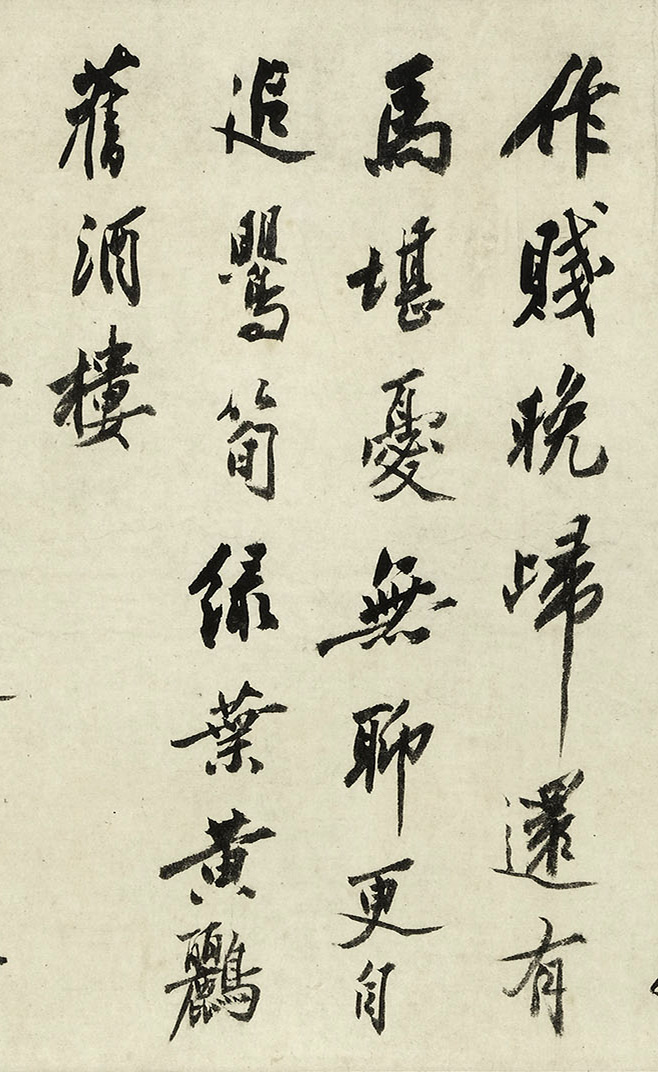 作賤晚歸還有
馬堪憂無聊更自
追鸎筍綠葉黃鸝
舊酒樓